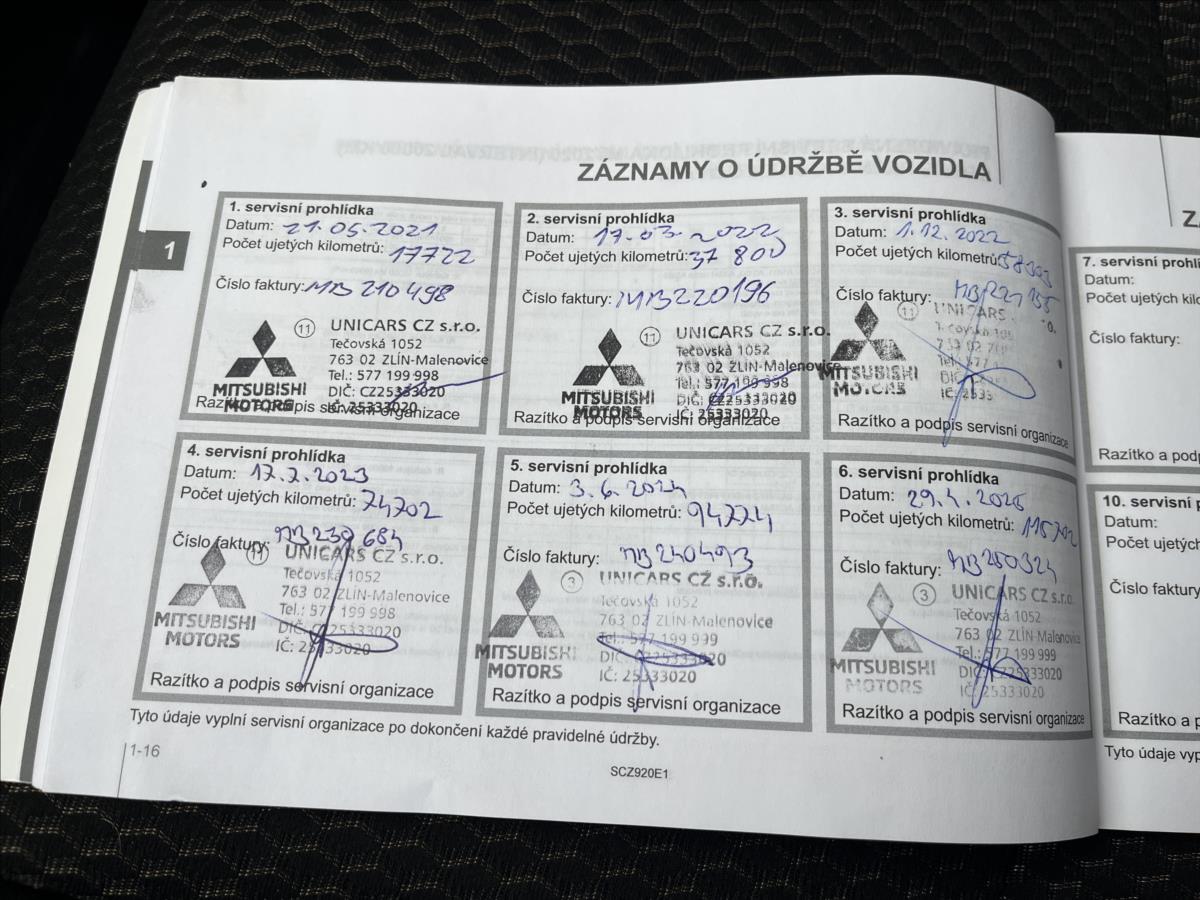 ZÁZNAMY O ÚDRŽBĚ VOZIDLA
1
1. servisní prohlídka
Datum: 21.05.2021
Počet ujetých kilometrů: 17722
Číslo faktury: MB 210498
11 UNICARS CZ s.r.o.
Tečovská 1052
763 02 ZLÍN-Malenovice
Tel.: 577 199 998
DIČ: CZ25333020
IČ: 25333020
MITSUBISHI
MOTORS
Razítko a podpis servisní organizace
2. servisní prohlídka
Datum: 17.03.2022
Počet ujetých kilometrů: 37 800
Číslo faktury: MB220196
11 UNICARS CZ s.r.o.
Tečovská 1052
763 02 ZLÍN-Malenovice
Tel.: 577 199 998
DIČ: CZ25333020
IČ: 25333020
MITSUBISHI
MOTORS
Razítko a podpis servisní organizace
3. servisní prohlídka
Datum: 1.12.2022
Počet ujetých kilometrů:
Číslo faktury:
11 UNICARS
MITSUBISHI
MOTORS
Razítko a podpis servisní organizace
4. servisní prohlídka
Datum: 17.7.2023
Počet ujetých kilometrů: 74702
Číslo faktury: MB230684
11 UNICARS CZ s.r.o.
Tečovská 1052
763 02 ZLÍN-Malenovice
Tel.: 577 199 998
DIČ: CZ25333020
IČ: 25333020
MITSUBISHI
MOTORS
Razítko a podpis servisní organizace
5. servisní prohlídka
Datum: 3.6.2024
Počet ujetých kilometrů: 94774
Číslo faktury: MB240493
3 UNICARS CZ s.r.o.
Tečovská 1052
763 02 ZLÍN-Malenovice
Tel.: 577 199 999
DIČ: CZ25333020
IČ: 25333020
MITSUBISHI
MOTORS
Razítko a podpis servisní organizace
6. servisní prohlídka
Datum: 29.4.2025
Počet ujetých kilometrů: 115702
Číslo faktury: MB250324
3 UNICARS CZ s.r.o.
Tečovská 1052
763 02 ZLÍN-Malenovice
Tel.: 577 199 999
DIČ: CZ25333020
IČ: 25333020
MITSUBISHI
MOTORS
Razítko a podpis servisní organizace
Tyto údaje vyplní servisní organizace po dokončení každé pravidelné údržby.
1-16
SCZ920E1
7. servisní prohlí
Datum:
Počet ujetých kilo
Číslo faktury:
Razítko a podp
10. servisní p
Datum:
Počet ujetýc
Číslo faktury
Razítko a p
Tyto údaje vyp